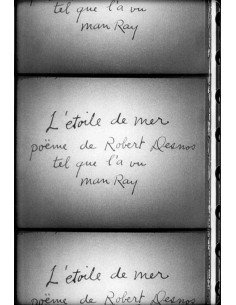 poëme de Robert Desnos
tel que l'a vu
man Ray
L'étoile de mer
poëme de Robert Desnos
tel que l'a vu
man Ray
L'étoile de mer
poëme de Robert Desnos